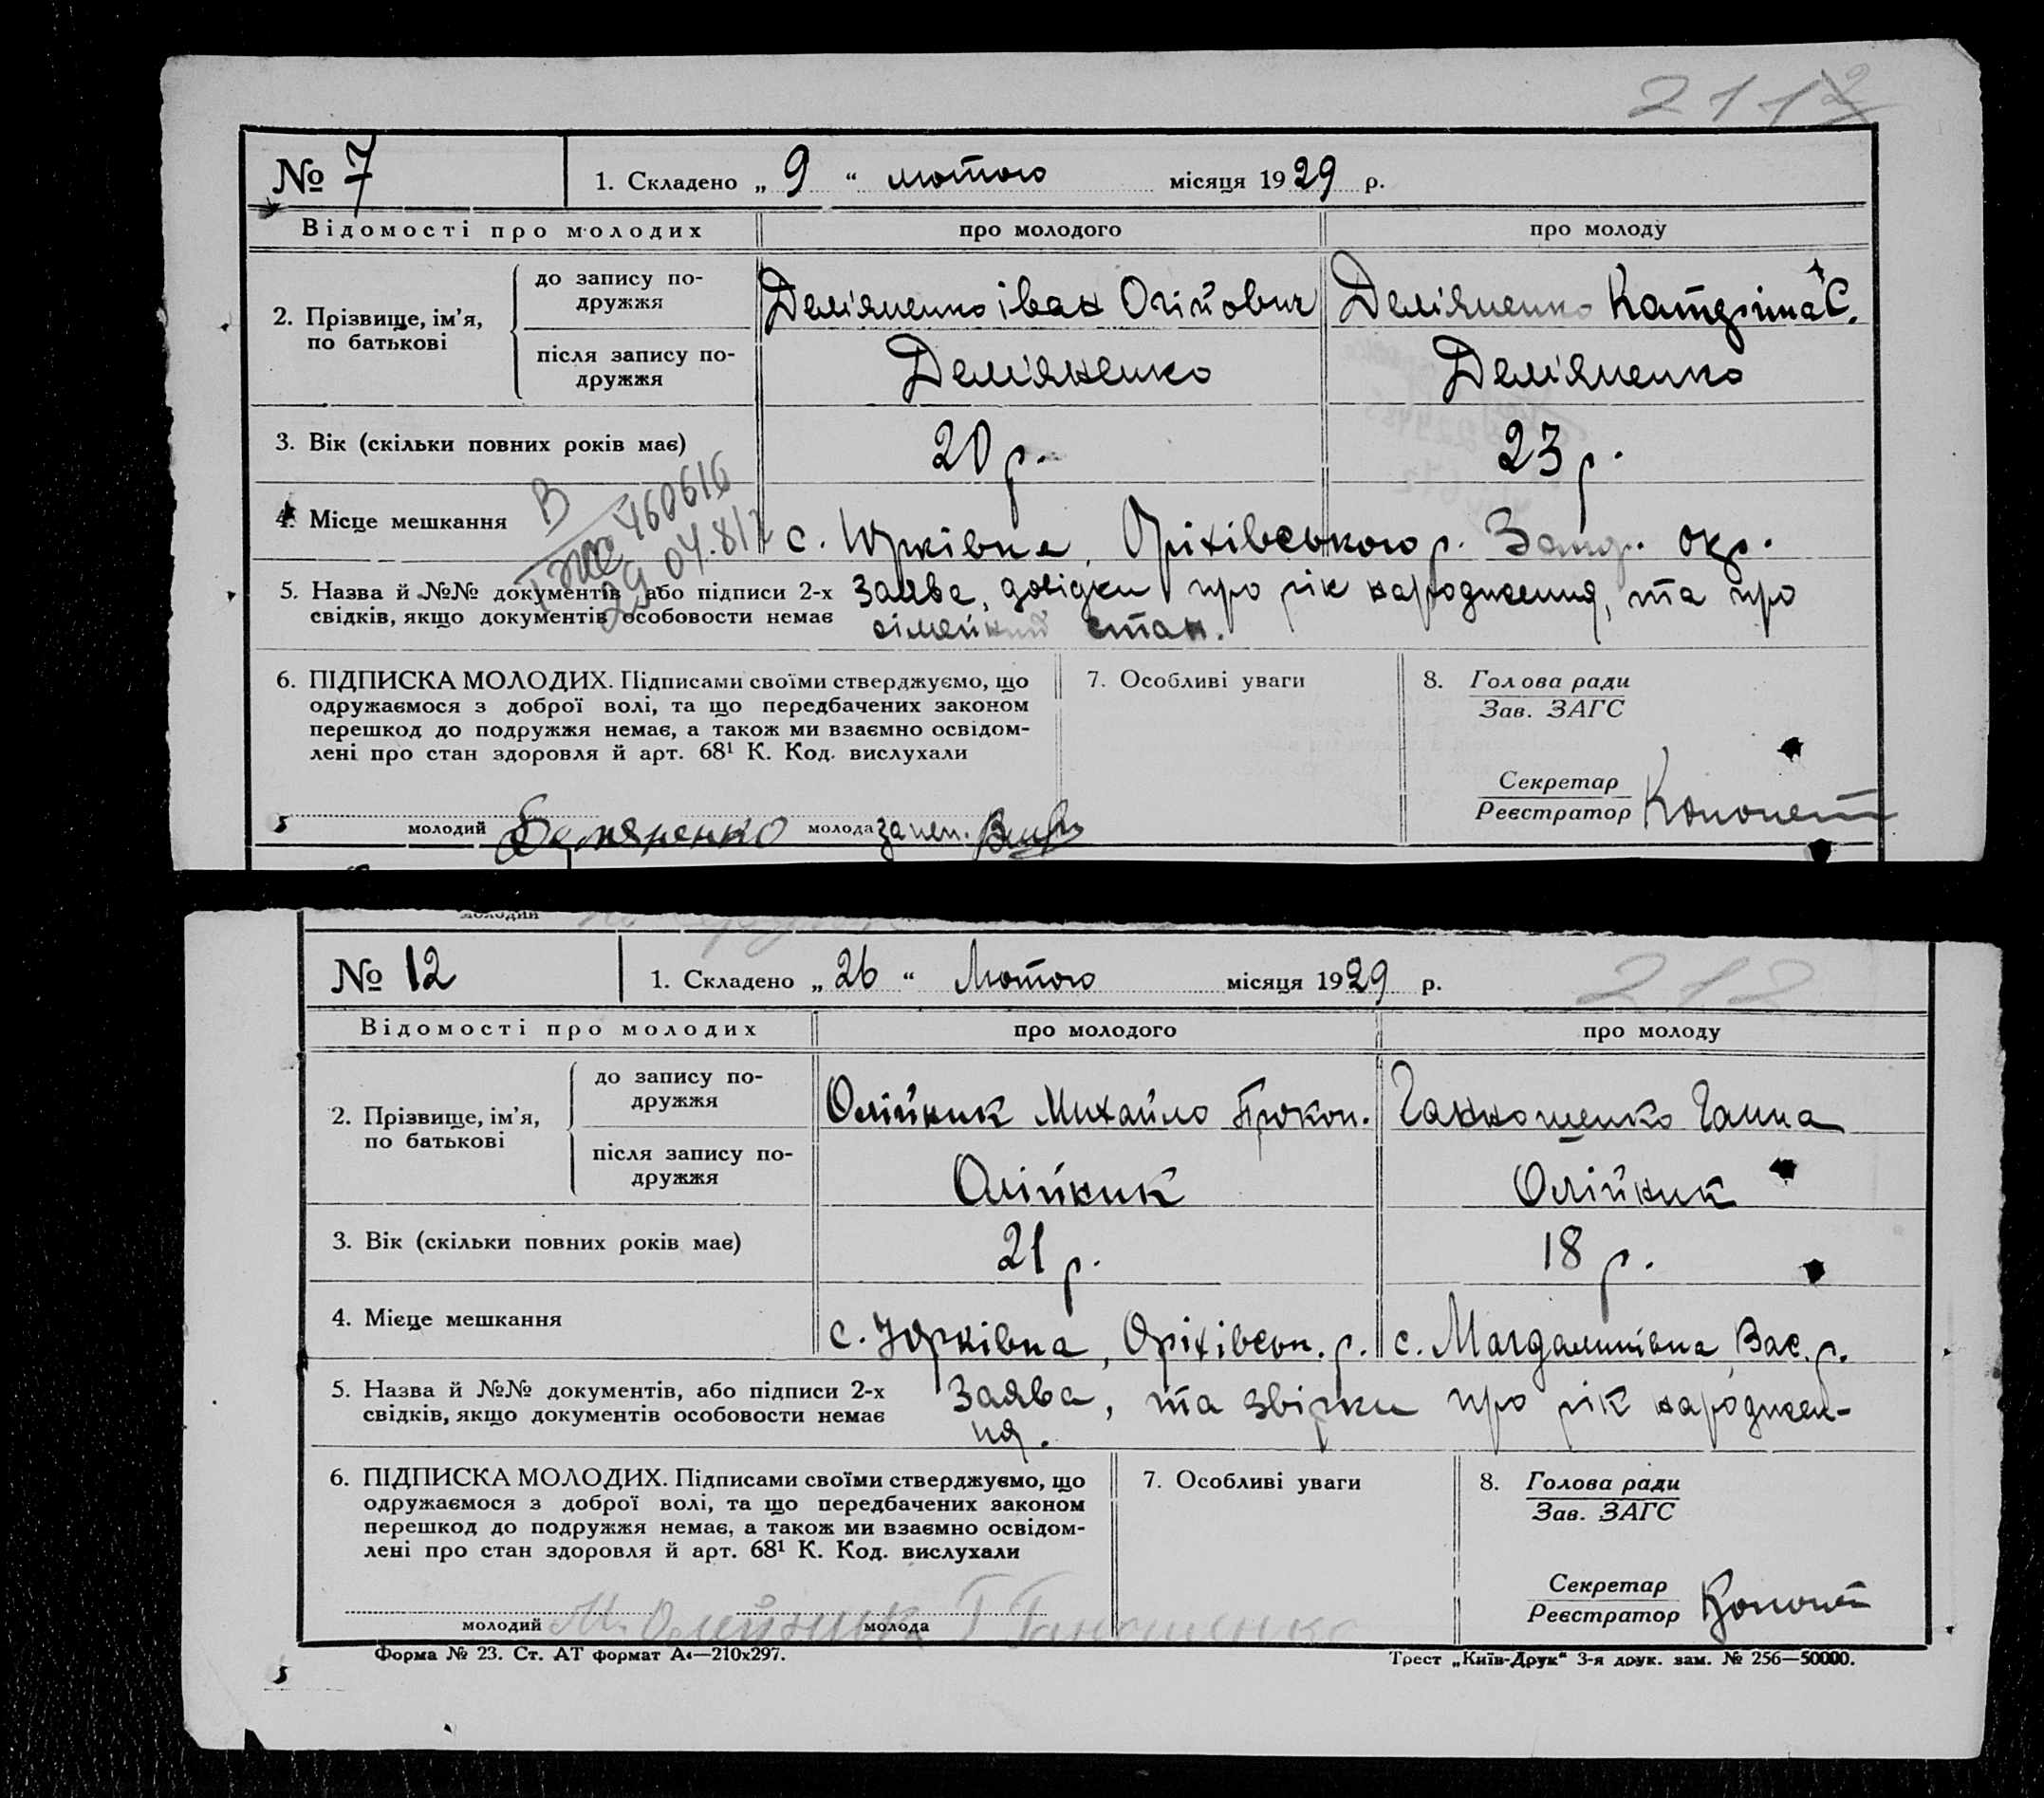 2112
№ 7
1. Складено „ 9 “ лютого місяця 1929 р.
Відомості про молодих про молодого про молоду
2. Прізвище, ім’я, по батькові
до запису подружжя
Дем'яненко Іван Оч Дем'яненко Катерина С.
після запису по-
дружжя
Дем'яненко Дем'яненко
3. Вік (скільки повних років має) 20 р. 23 р.
4. Місце мешкання с. Юрківка, Оріхівського р. Запор. окр.
В
460616
5. Назва й №№ документів або підписи 2-х Заява, довідки про рік народження, та про
свідків, якщо документів особовости немає сімейний стан.
6. ПІДПИСКА МОЛОДИХ. Підписами своїми стверджуємо, що
одружаємося з доброї волі, та що передбачених законом
перешкод до подружжя немає, а також ми взаємно освідом-
лені про стан здоровля й арт. 68¹ К. Код. вислухали
молодий Демяненко молода за неп.
7. Особливі уваги
8. Голова ради
Зав. ЗАГС
Секретар
Реєстратор
молодий
№ 12
1. Складено „ 26 “ Лютого місяця 1929 р.
212
Відомості про молодих про молодого про молоду
2. Прізвище, ім’я,
по батькові
до запису по-
дружжя
Олійник Михайло Прокоп. Ганна
після запису по-
дружжя
Олійник Олійник
3. Вік (скільки повних років має) 21 р. 18 р.
4. Місце мешкання с. Юрківка, Оріхівськ. р. с. Магдалинівка Вас. р.
5. Назва й №№ документів, або підписи 2-х Заява, та звірки про рік народжен-
свідків, якщо документів особовости немає ня.
6. ПІДПИСКА МОЛОДИХ. Підписами своїми стверджуємо, що
одружаємося з доброї волі, та що передбачених законом
перешкод до подружжя немає, а також ми взаємно освідом-
лені про стан здоровля й арт. 68¹ К. Код. вислухали
молодий М. Олейник молода Г
7. Особливі уваги
8. Голова ради
Зав. ЗАГС
Секретар
Реєстратор
Форма № 23. Ст. АТ формат А4—210х297.
Трест „Київ-Друк“ 3-я друк. зам. № 256—50000.